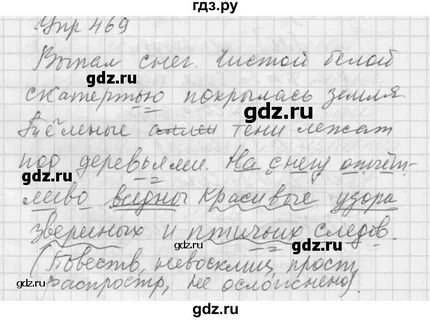 гдз.ру
Упр 469
Выпал снег. Чистой белой
gdz.ru
gdz.ru
скатертью покрылась земля.
Тёмные тени лежат
под деревьями. На снегу отчёт-
gdz.ru
gdz.ru
ливо видны красивые узоры
звериных и птичьих следов.
gdz.ru
gdz.ru
(Повеств, невосклиц, прост,
распростр, не осложнено)
gdz.ru